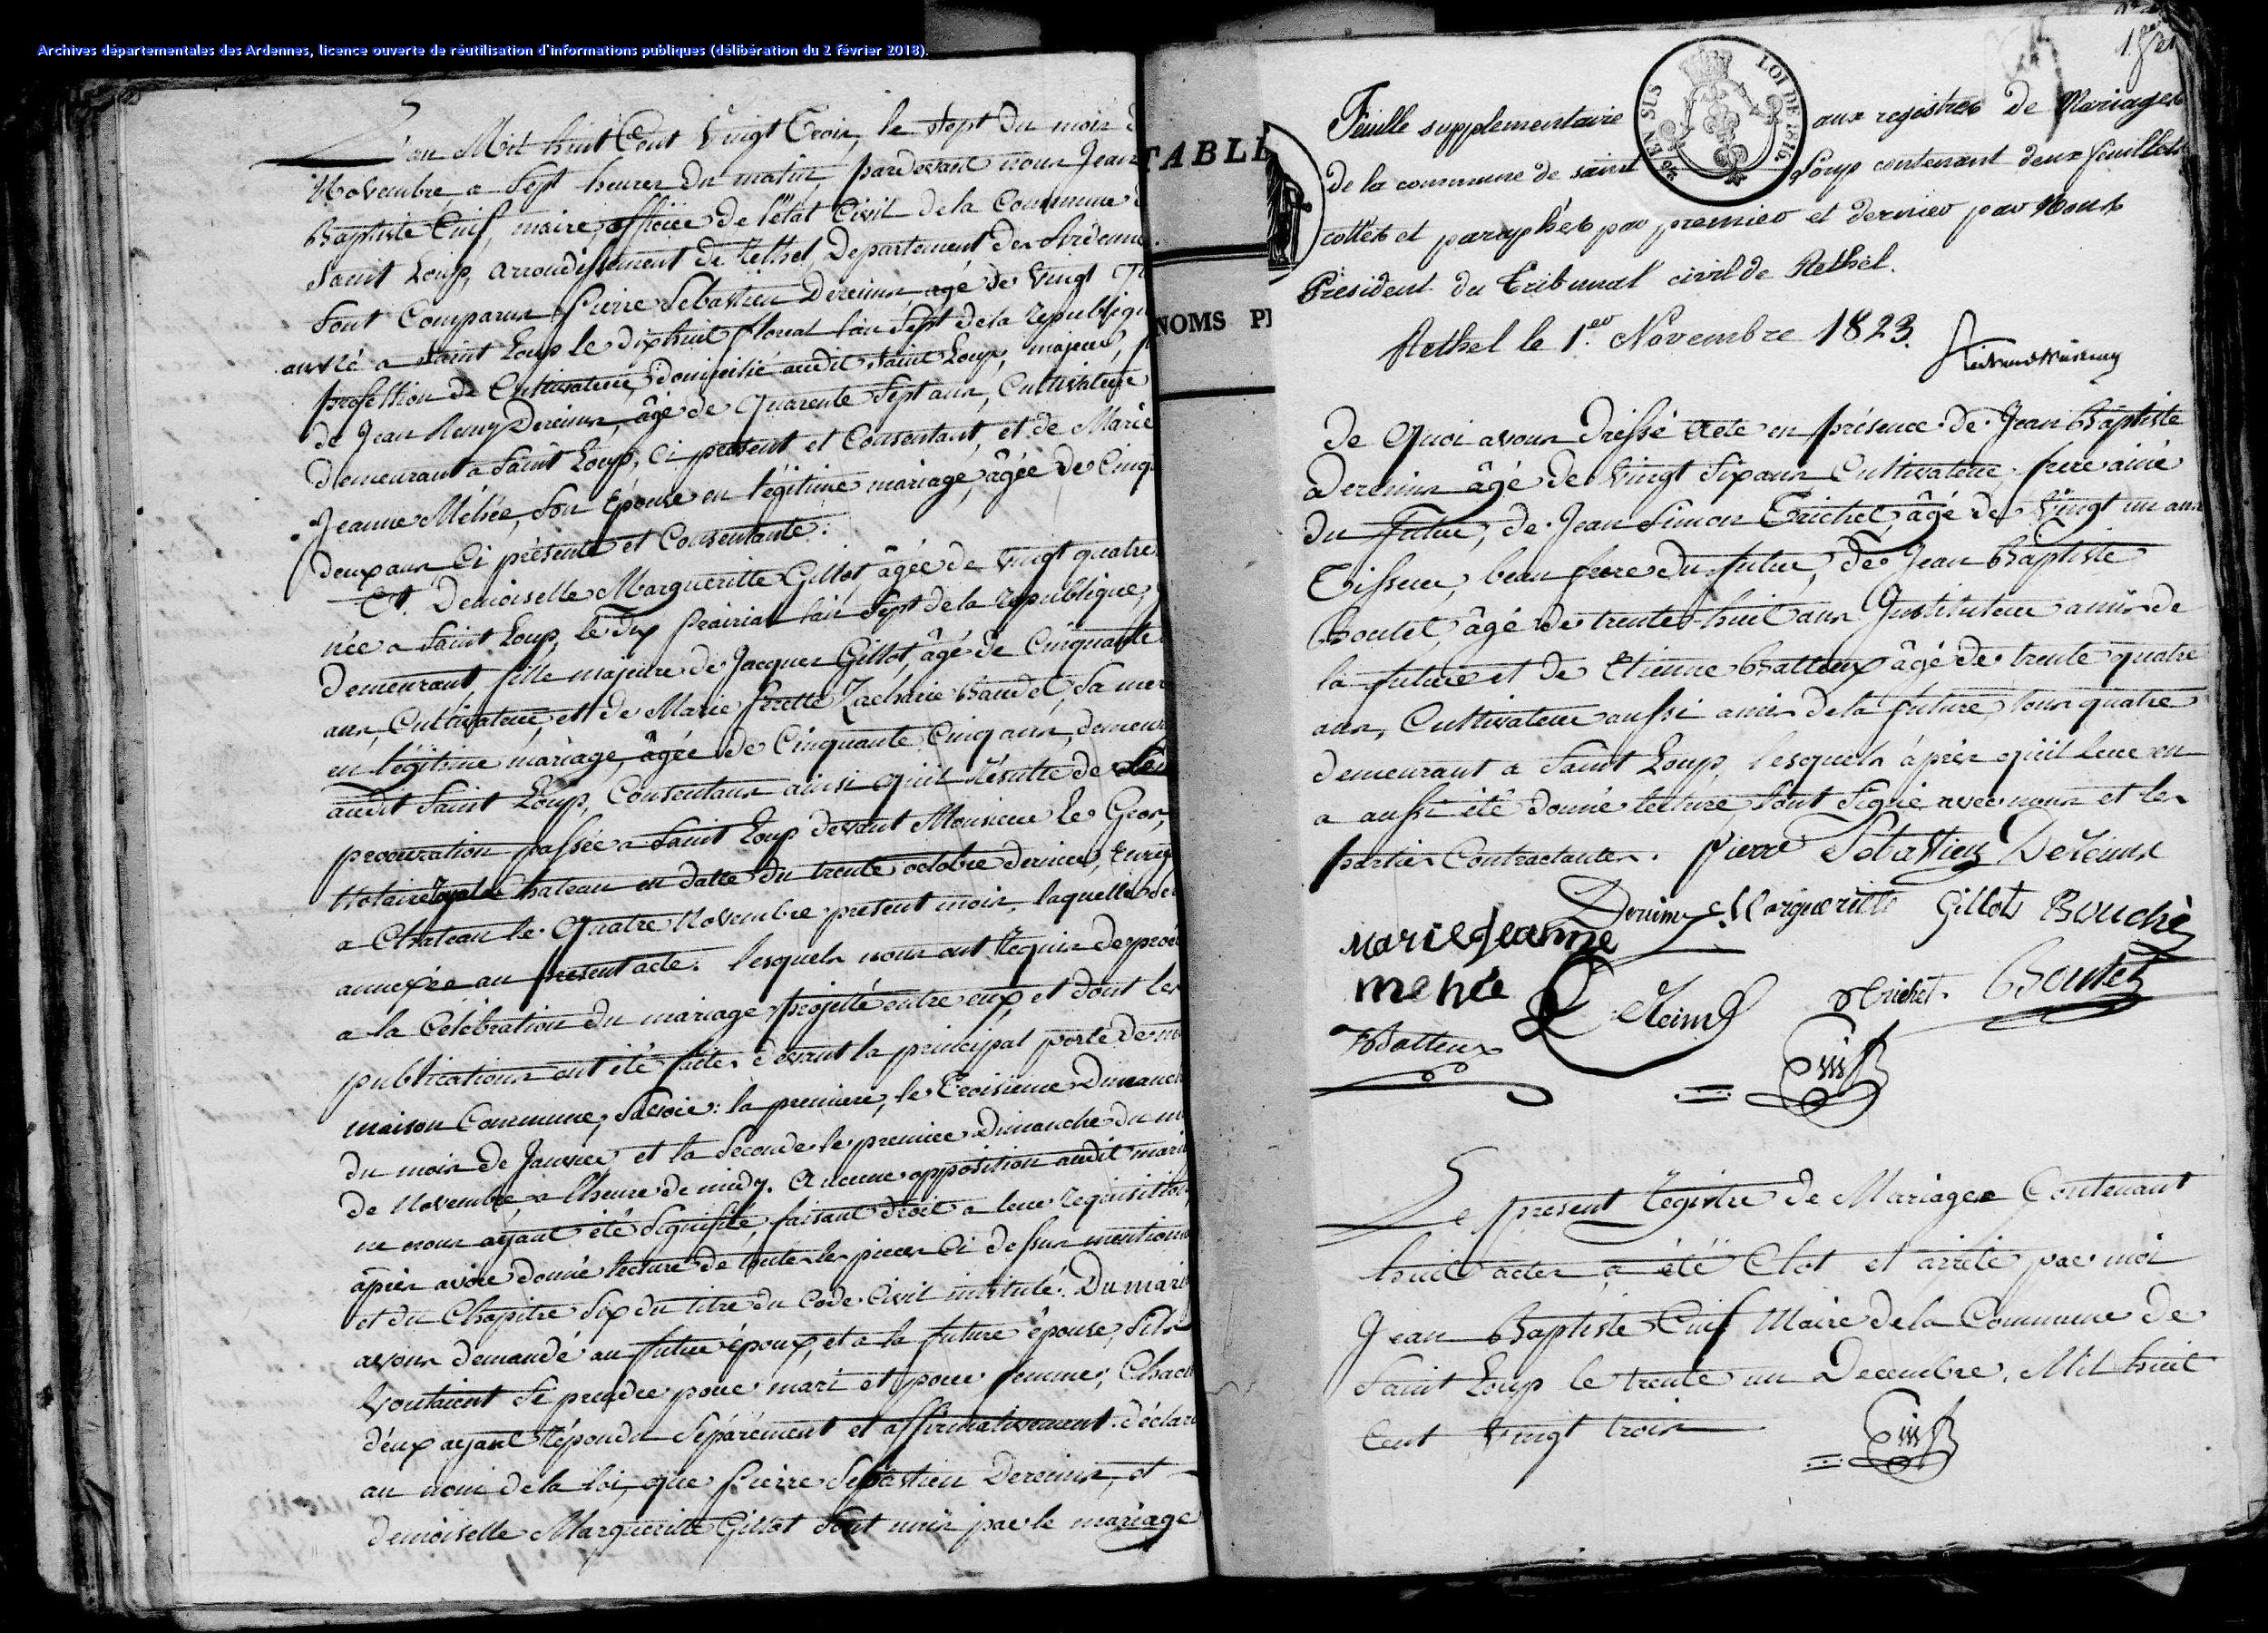 Archives départementales des Ardennes, licence ouverte de réutilisation d'informations publiques (délibération du 2 février 2018).
L'an Mil huit Cent Vingt Trois, le Sept du mois
Novembre, a Sept heures du matin, pardevant nous Jean
Baptiste Cuif, maire, officier de l'état Civil de la Commune
Saint Loup, arrondissement de Rethel, Departement des Ardennes
Sont Comparus Pierre Sebastien Dereims, agé de Vingt
ans né a Saint Loup le dixhuit floreal l'an Sept de la republique
profession de Cultivateur, domicilié audit Saint Loup, majeur,
de Jean Remy Dereims, âgé de quarente Sept ans, Cultivateur
demeurant a Saint Loup, ci present et Consentant, et de Marie
Jeanne Méhée, Son Epouse en légitime mariage, âgée de Cinq
deux ans Ci présente et Consentante.
Et Demoiselle Margueritte Gillot, âgée de Vingt quatre
née a Saint Loup, le dix prairial l'an Sept de la république,
demeurant, fille majeure de Jacques Gillot, âgé de Cinquante
ans, Cultivateur, et de Marie Zacharie Baudet, Sa mere
en légitime mariage, âgée de Cinquante Cinq ans, demeur
audit Saint Loup, Consentans ainsi qu'il Résulte de
procuration passée a Saint Loup devant Monsieur Le Gros,
Notaire Royal a Chateau en datte du trente octobre dernier, Enreg
a Chateau le quatre Novembre present mois, laquelle
annexée au present acte. lesquels nous ont Requis de proce
a la Célébration du mariage projetté entre eux, et dont les
publications ont été faites devant la principal porte de
maison Commune, Savoir: la premiere, le Troisieme Dimanch
du mois de Janvier, et la Seconde le premier Dimanche du m
de Novembre, a l'heure de midy. Aucune opposition audit mari
ne nous ayant été Signifiée, faisant droit a leur requisition
âprès avoir donné lecture de toutes les pieces Ci dessus mentionn
et du Chapitre Six du titre du Code Civil intitulé: Du mari
avons demandé au futur époux, et a la future épouse, S'ils
Voulaient Se prendre pour mari et pour femme; Chac
d'eux ayant Répondu Séparément et affirmativement. déclar
au nom de la loi, que Pierre Sebastien Dereims, et
demoiselle Margueritte Gillot Sont unis par le mariage
TABLE
NOMS
Feuille supplementaire aux registres de Mariages
LOI DE 1816
EN SUS
de la commune de saint Loup contenant deux feuillets
cottés et paraphés par premier et dernier par Nous
Président du Tribunal civil de Rethel.
Rethel le 1.er Novembre 1823.
de quoi avons dressé Acte en présence de Jean Baptiste
Dereims âgé de Vingt Six ans Cultivateur, frere ainé
du futur, de Jean Simon Trichet, âgé de Vingt un ans
Tisseur, beau frere du futur, de Jean Baptiste
Boutet, âgé de trente huit ans Instituteur amis de
la future et de Etienne Batteux âgé de trente quatre
ans, Cultivateur aussi amis de la future, tous quatre
demeurant a Saint Loup, lesquels âprès qu'il leur en
a aussi été donné lecture, Sont Signé avec nous et les
parties Contractantes. Pierre Sebastien Dereims
Dereims Margueritte Gillot Bouché
Marie Jeanne
mehée D Reims Trichet Boutet
Batteux
Cuif
Le present Registre de Mariages Contenant
huit actes a été Clot et arrêté par moi
Jean Baptiste Cuif Maire de la Commune de
Saint Loup le trente un Decembre, Mil huit
Cent Vingt trois
Cuif